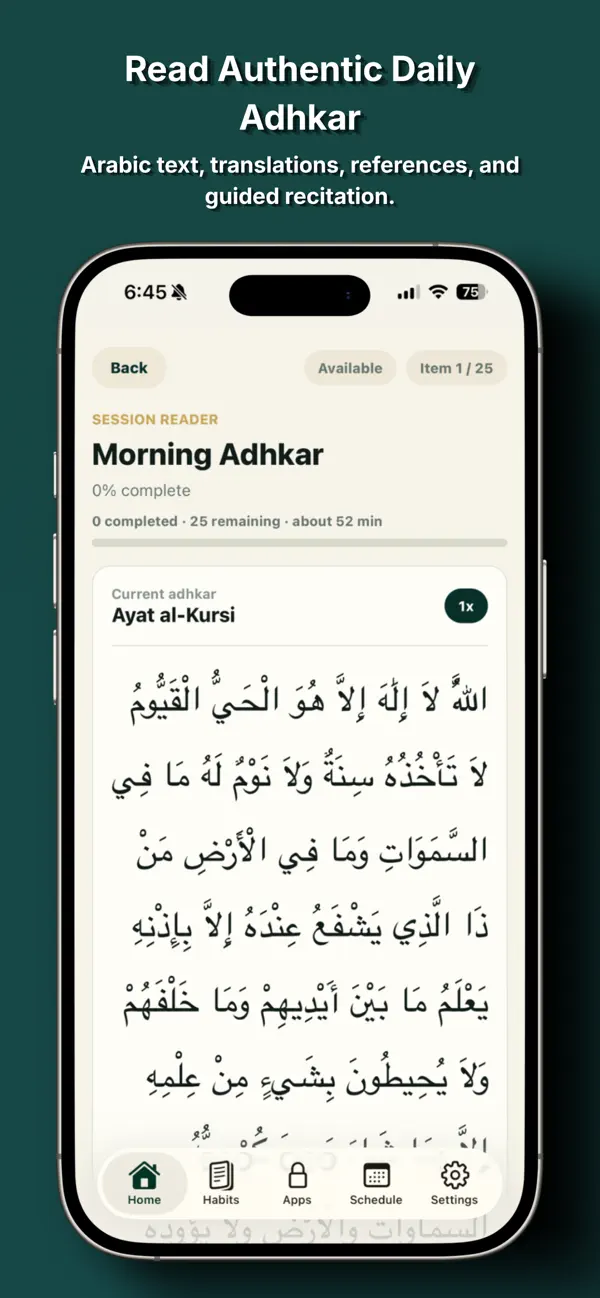 Read Authentic Daily
Adhkar
Arabic text, translations, references, and
guided recitation.
6:45
75
Back
Available
Item 1 / 25
SESSION READER
Morning Adhkar
0% complete
0 completed · 25 remaining · about 52 min
Current adhkar
Ayat al-Kursi
1x
اللهُ لاَ إِلَهَ إِلاَّ هُوَ الْحَيُّ الْقَيُّومُ
لاَ تَأْخُذُهُ سِنَةٌ وَلاَ نَوْمٌ لَهُ مَا فِي
السَّمَوَاتِ وَمَا فِي الْأَرْضِ مَنْ
ذَا الَّذِي يَشْفَعُ عِنْدَهُ إِلاَّ بِإِذْنِهِ
يَعْلَمُ مَا بَيْنَ أَيْدِيهِمْ وَمَا خَلْفَهُمْ
وَلاَ يُحِيطُونَ بِشَيءٍ مِنْ عِلْمِهِ
Home
Habits
Apps
Schedule
Settings
السماوات والأرض ولا يؤوده